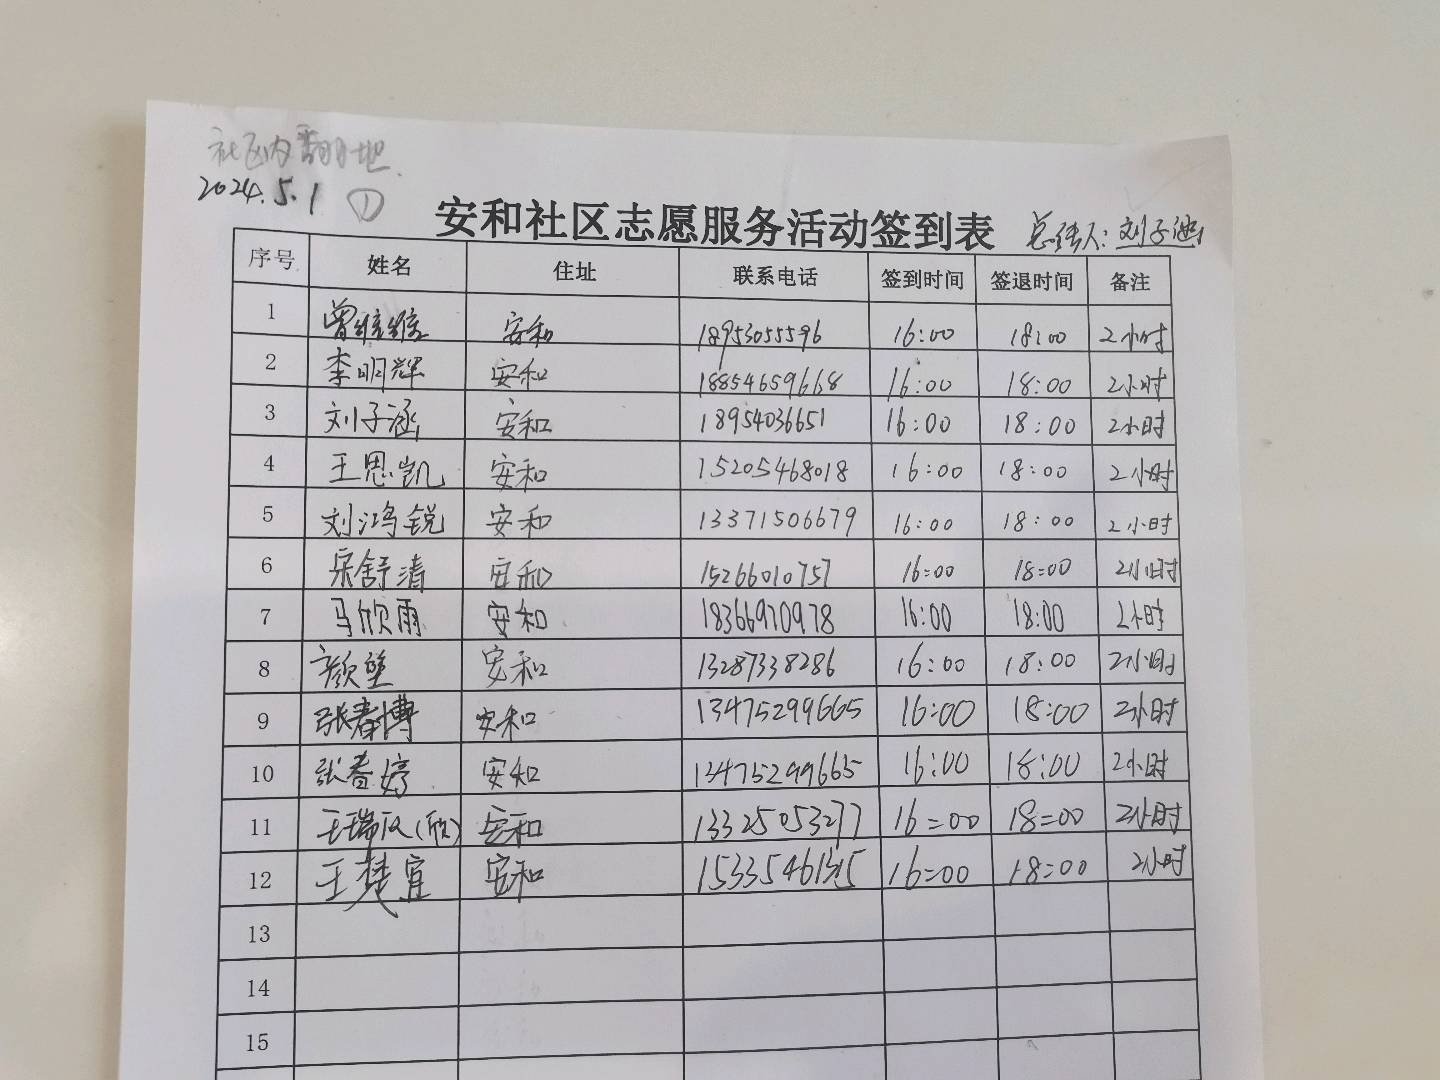 社区内翻地
2024.5.1 ①
安和社区志愿服务活动签到表 总负责人:刘子迪
序号 姓名 住址 联系电话 签到时间 签退时间 备注
1 曾维维 安和 18953055596 16:00 18:00 2小时
2 李明辉 安和 18854659668 16:00 18:00 2小时
3 刘子涵 安和 18954036651 16:00 18:00 2小时
4 王思凯 安和 15205468018 16:00 18:00 2小时
5 刘鸿锐 安和 13371506679 16:00 18:00 2小时
6 宋舒清 安和 15266010757 16:00 18:00 2小时
7 马欣雨 安和 18366970978 16:00 18:00 2小时
8 颜堃 安和 13287338286 16:00 18:00 2小时
9 张春博 安和 13475299665 16:00 18:00 2小时
10 张春婷 安和 13475299665 16:00 18:00 2小时
11 王瑞(欣) 安和 13325053277 16:00 18:00 2小时
12 王楚宜 安和 16:00 18:00 2小时
13
14
15